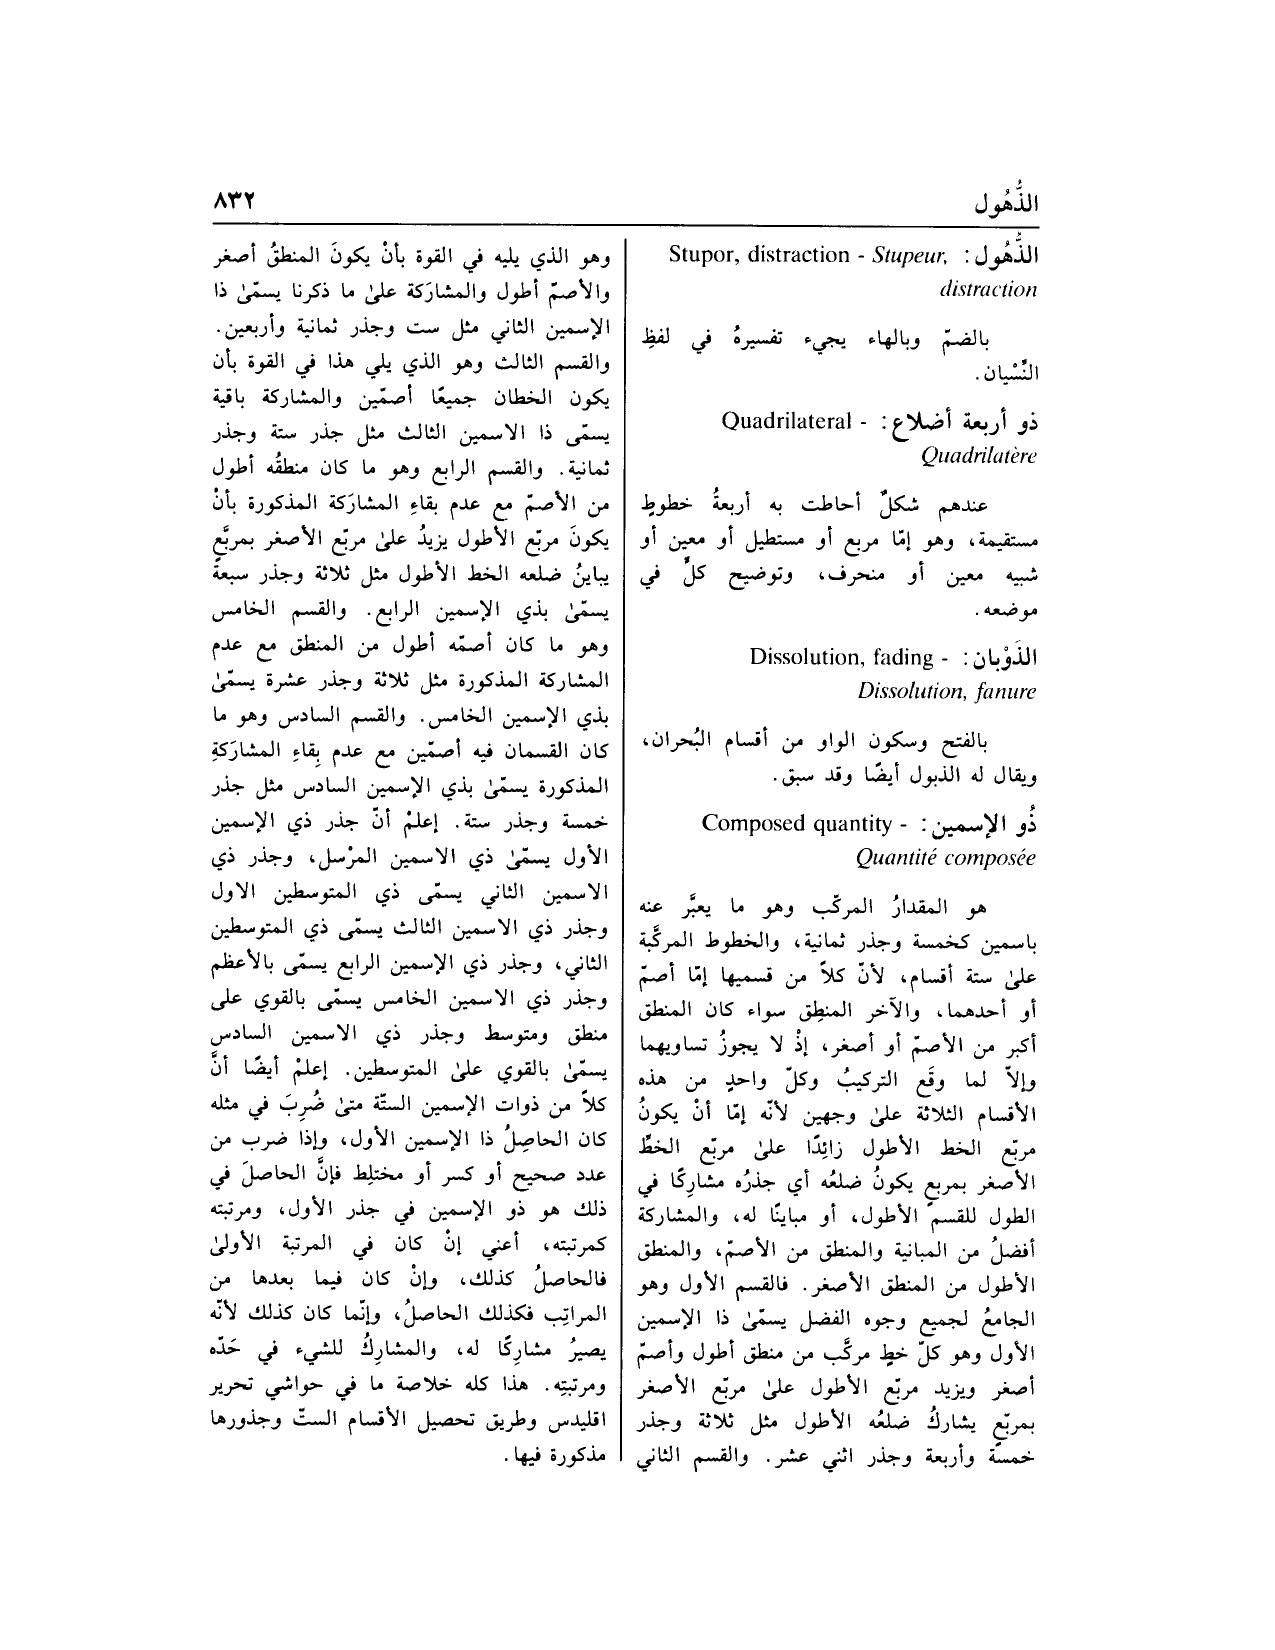 الذُّهُول
٨٣٢
الذُّهُول: Stupor, distraction - Stupeur,
distraction
بالضمّ وبالهاء يجيء تفسيرهُ في لفظِ
النِّسْيان.
ذو أربعة أضلاع: Quadrilateral -
Quadrilatère
عندهم شكلٌ أحاطت به أربعةُ خطوطٍ
مستقيمة، وهو إمّا مربع أو مستطيل أو معين أو
شبيه معين أو منحرف، وتوضيح كلٍّ في
موضعه.
الذَوْبان: Dissolution, fading -
Dissolution, fanure
بالفتح وسكون الواو من أقسام البُحران،
ويقال له الذبول أيضًا وقد سبق.
ذُو الإسمين: Composed quantity -
Quantité composée
هو المقدارُ المركّب وهو ما يعبَّر عنه
باسمين كخمسة وجذر ثمانية، والخطوط المركَّبة
علىٰ ستة أقسام، لأنّ كلاً من قسميها إمّا أصمّ
أو أحدهما، والآخر المنطِق سواء كان المنطق
أكبر من الأصمّ أو أصغر، إذْ لا يجوزُ تساويهما
وإلاّ لما وقَع التركيبُ وكلّ واحدٍ من هذه
الأقسام الثلاثة علىٰ وجهين لأنّه إمّا أنْ يكونُ
مربّع الخط الأطول زائِدًا علىٰ مربّع الخطِّ
الأصغر بمربعٍ يكونُ ضلعُه أي جذرُه مشارِكًا في
الطول للقسم الأطول، أو مباينًا له، والمشاركة
أفضلُ من المباينة والمنطق من الأصمّ، والمنطق
الأطول من المنطق الأصغر. فالقسم الأول وهو
الجامعُ لجميع وجوه الفضل يسمّىٰ ذا الإسمين
الأول وهو كلّ خطٍ مركَّب من منطق أطول وأصمّ
أصغر ويزيد مربّع الأطول علىٰ مربّع الأصغر
بمربّعٍ يشاركُ ضلعُه الأطول مثل ثلاثة وجذر
خمسة وأربعة وجذر اثني عشر. والقسم الثاني
وهو الذي يليه في القوة بأنْ يكونَ المنطقُ أصغر
والأصمّ أطول والمشارَكة علىٰ ما ذكرنا يسمّىٰ ذا
الإسمين الثاني مثل ست وجذر ثمانية وأربعين.
والقسم الثالث وهو الذي يلي هذا في القوة بأن
يكون الخطان جميعًا أصمّين والمشاركة باقية
يسمّى ذا الاسمين الثالث مثل جذر ستة وجذر
ثمانية. والقسم الرابع وهو ما كان منطقُه أطول
من الأصمّ مع عدم بقاءِ المشارَكة المذكورة بأنْ
يكونَ مربّع الأطول يزيدُ علىٰ مربّع الأصغر بمربَّعٍ
يباينُ ضلعه الخط الأطول مثل ثلاثة وجذر سبعة
يسمّىٰ بذي الإسمين الرابع. والقسم الخامس
وهو ما كان أصمّه أطول من المنطق مع عدم
المشاركة المذكورة مثل ثلاثة وجذر عشرة يسمّىٰ
بذي الإسمين الخامس. والقسم السادس وهو ما
كان القسمان فيه أصمّين مع عدم بقاءِ المشارَكةِ
المذكورة يسمّىٰ بذي الإسمين السادس مثل جذر
خمسة وجذر ستة. إعلمْ أنّ جذر ذي الإسمين
الأول يسمّىٰ ذي الاسمين المرْسل، وجذر ذي
الاسمين الثاني يسمّى ذي المتوسطين الاول
وجذر ذي الاسمين الثالث يسمّى ذي المتوسطين
الثاني، وجذر ذي الإسمين الرابع يسمّى بالأعظم
وجذر ذي الاسمين الخامس يسمّى بالقوي على
منطق ومتوسط وجذر ذي الاسمين السادس
يسمّىٰ بالقوي علىٰ المتوسطين. إعلمْ أيضًا أنَّ
كلاً من ذوات الإسمين الستّة متىٰ ضُرِبَ في مثله
كان الحاصِلُ ذا الإسمين الأول، وإذا ضرب من
عدد صحيح أو كسر أو مختلِط فإنَّ الحاصلَ في
ذلك هو ذو الإسمين في جذر الأول، ومرتبته
كمرتبته، أعني إنْ كان في المرتبة الأولىٰ
فالحاصلُ كذلك، وإنْ كان فيما بعدها من
المراتِب فكذلك الحاصلُ، وإنّما كان كذلك لأنّه
يصيرُ مشارِكًا له، والمشارِكُ للشيء في حَدّه
ومرتبتِه. هذا كله خلاصة ما في حواشي تحرير
اقليدس وطريق تحصيل الأقسام الستّ وجذورها
مذكورة فيها.